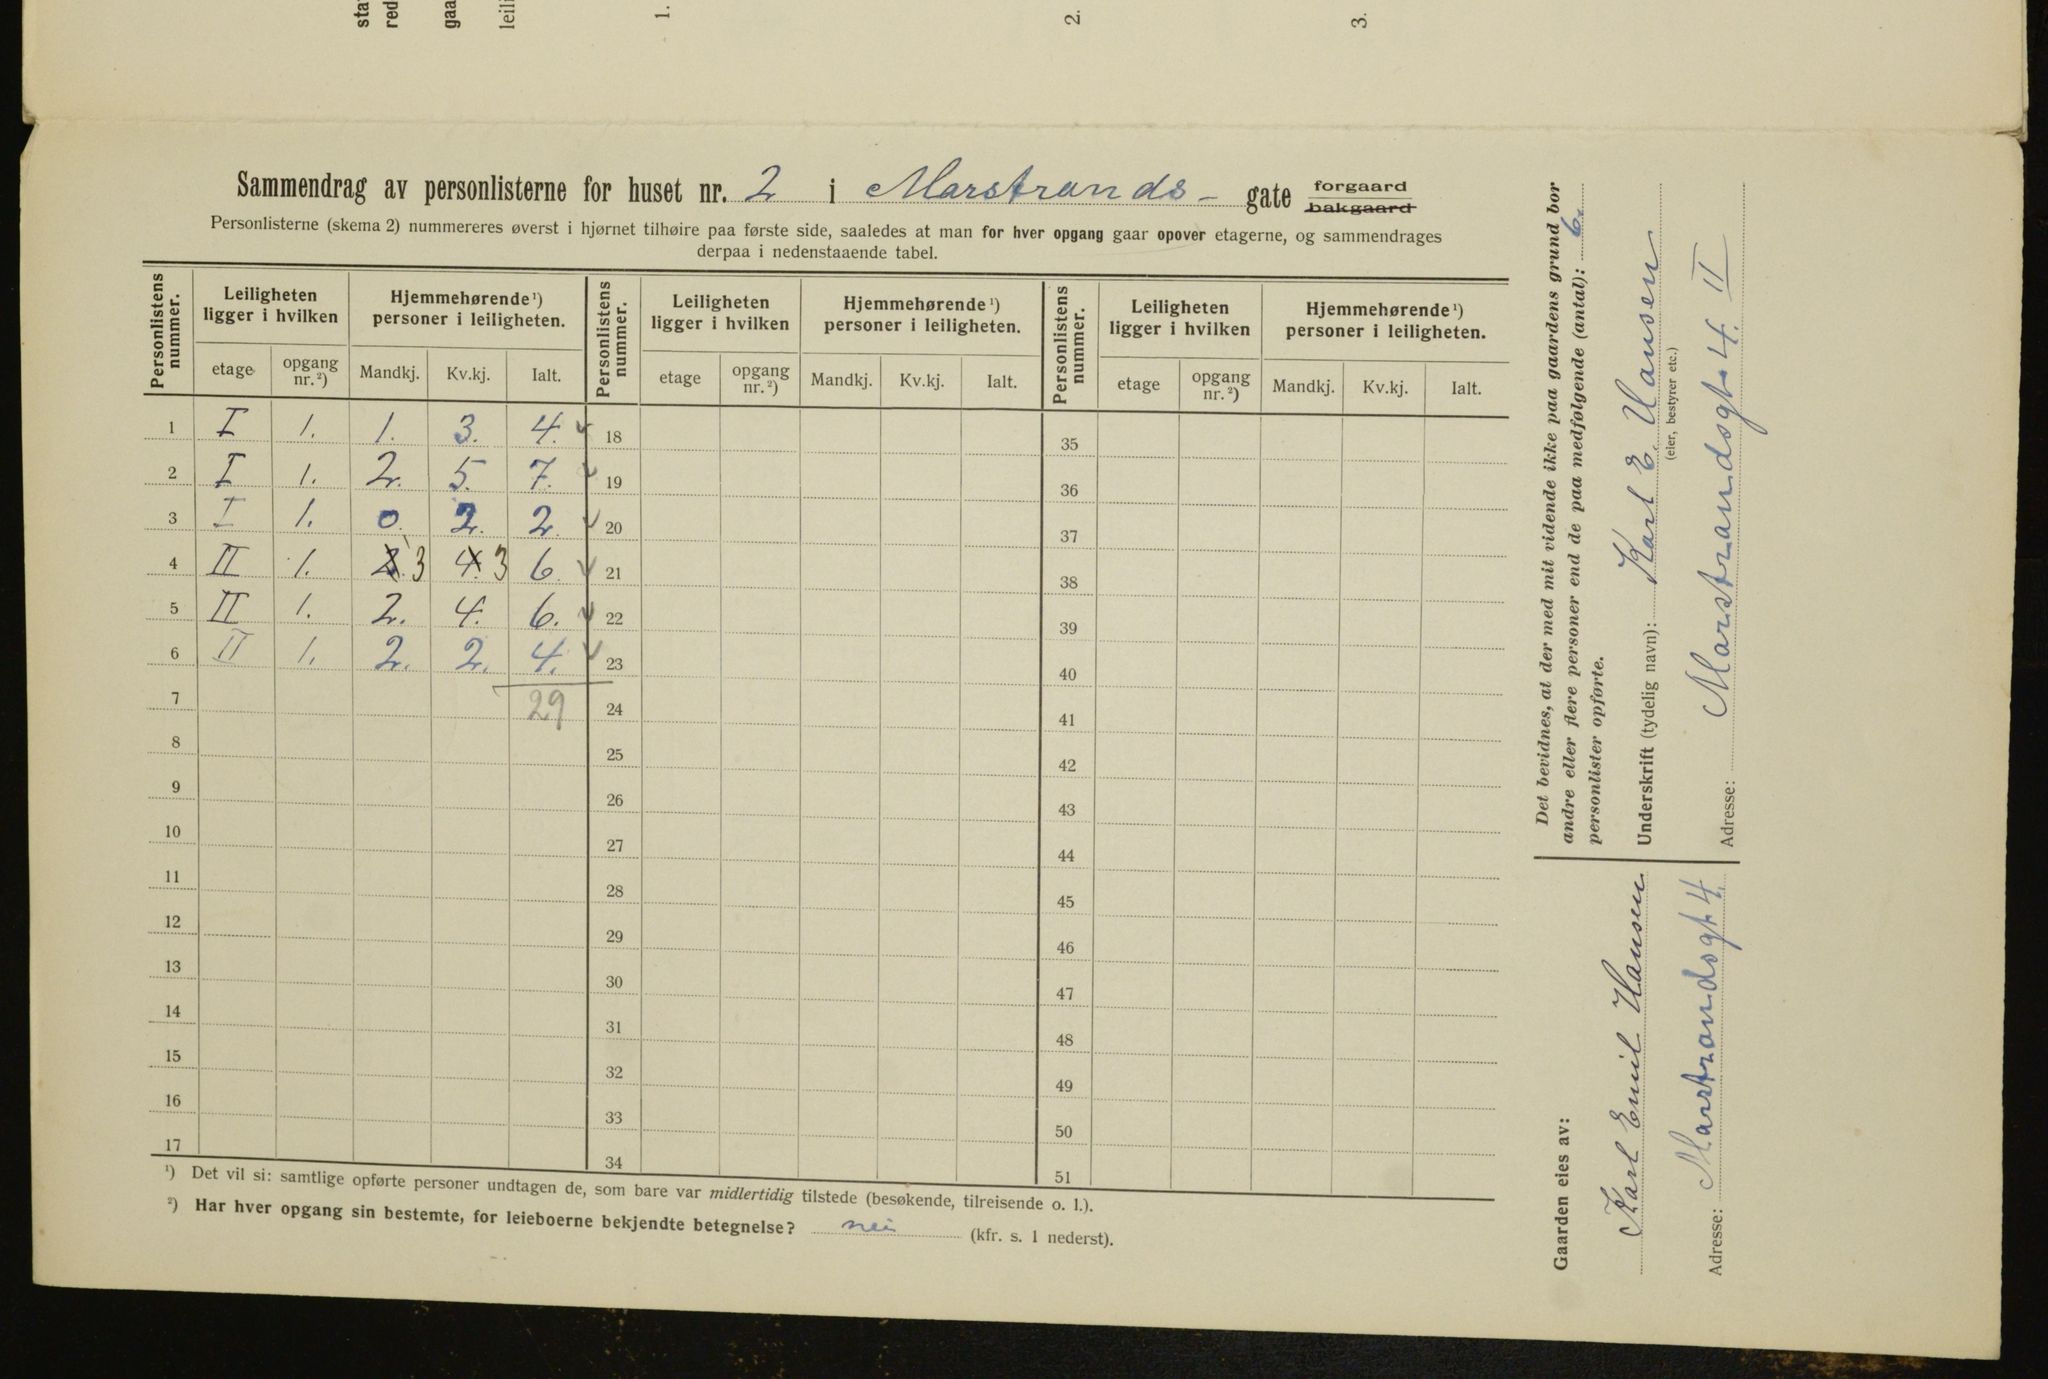 sta
red
gaa
leili
1.
2.
3.
Sammendrag av personlisterne for huset nr. 2 i Marstrands- gate forgaard bakgaard
Personlisterne (skema 2) nummereres øverst i hjørnet tilhøire paa første side, saaledes at man for hver opgang gaar opover etagerne, og sammendrages
derpaa i nedenstaaende tabel.
Personlistens nummer. Leiligheten ligger i hvilken Hjemmehørende ¹) personer i leiligheten. Personlistens nummer. Leiligheten ligger i hvilken Hjemmehørende ¹) personer i leiligheten. Personlistens nummer. Leiligheten ligger i hvilken Hjemmehørende ¹) personer i leiligheten.
etage opgang nr. ²) Mandkj. Kv.kj. Ialt. etage opgang nr. ²) Mandkj. Kv.kj. Ialt. etage opgang nr. ²) Mandkj. Kv.kj. Ialt.
1 I 1. 1. 3. 4. 18 35
2 I 1. 2. 5. 7. 19 36
3 I 1. 0. 2. 2. 20 37
4 II 1. 2. 3 4. 3 6. 21 38
5 II 1. 2. 4. 6. 22 39
6 II 1. 2. 2. 4. 23 40
7 29 24 41
8 25 42
9 26 43
10 27 44
11 28 45
12 29 46
13 30 47
14 31 48
15 32 49
16 33 50
17 34 51
¹) Det vil si: samtlige opførte personer undtagen de, som bare var midlertidig tilstede (besøkende, tilreisende o. l.).
²) Har hver opgang sin bestemte, for leieboerne bekjendte betegnelse? nei (kfr. s. 1 nederst).
Gaarden eies av:
Karl Emil Hansen
Adresse: Marstrandsgt 4.
Det bevidnes, at der med mit vidende ikke paa gaardens grund bor
andre eller flere personer end de paa medfølgende (antal): 6.
personlister opførte.
Underskrift (tydelig navn): Karl E. Hansen
(eier, bestyrer etc.)
Adresse: Marstrandsgt 4. II